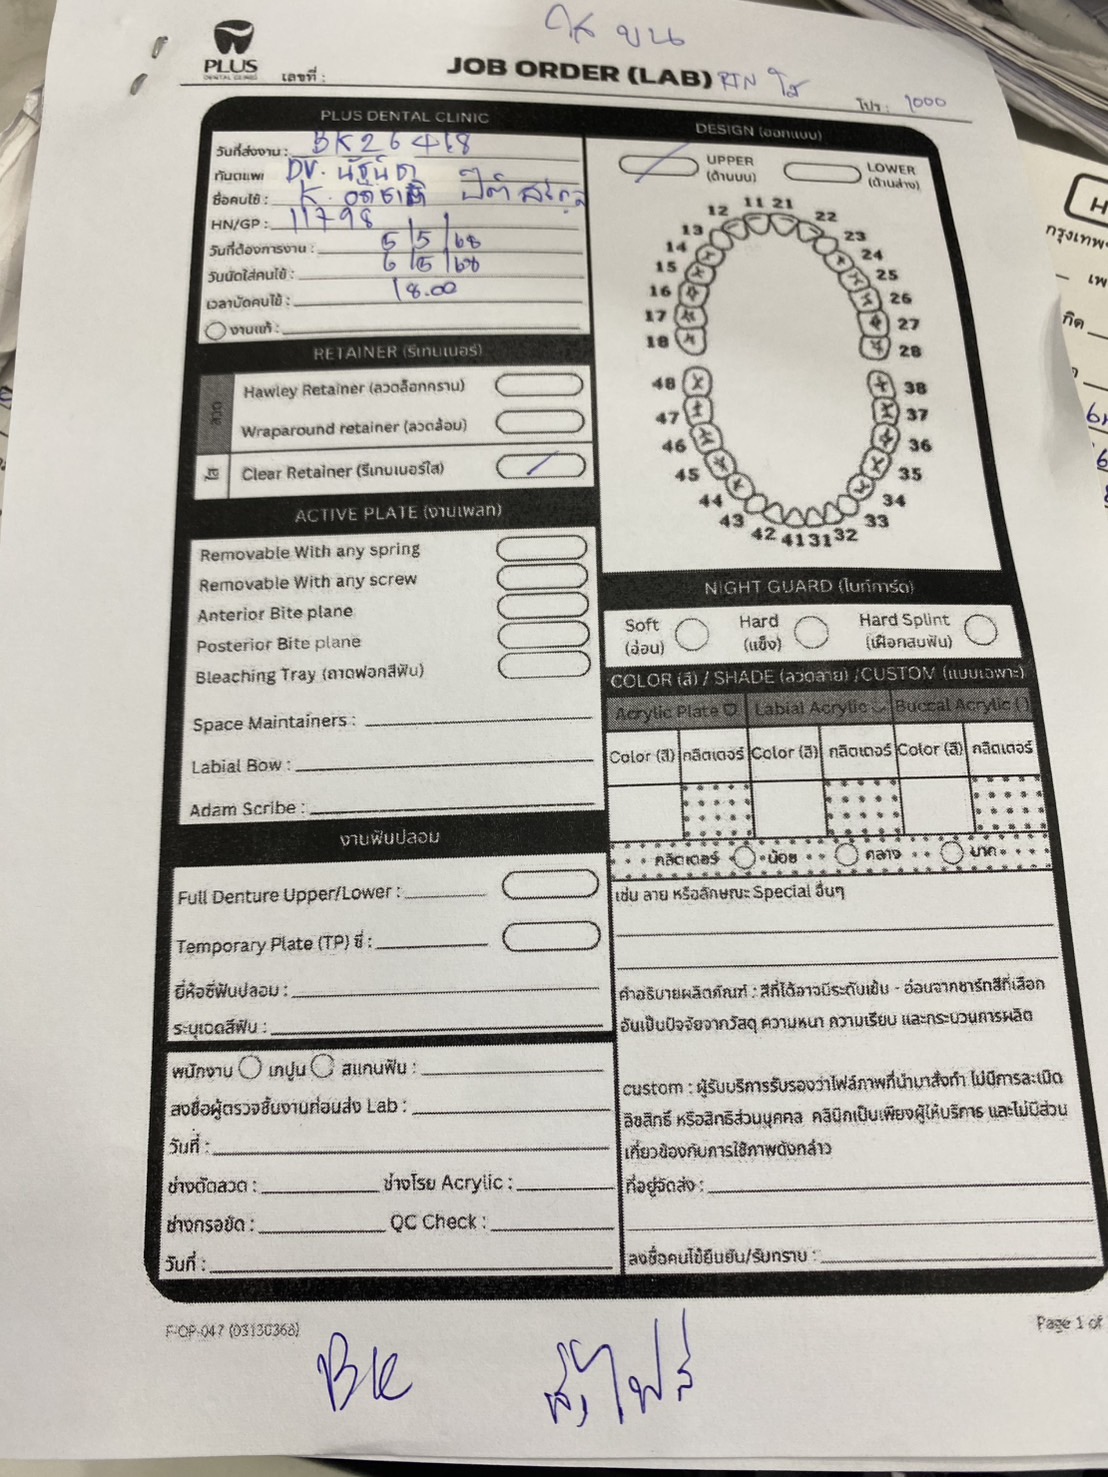 ใส บน
PLUS
DENTAL CLINIC
เลขที่ :
JOB ORDER (LAB) RTN ใส
โปร : 1000
PLUS DENTAL CLINIC
วันที่ส่งงาน : BK 26 4 68
ทันตแพ Dr. นัฐนิชา
ชื่อคนไข้ : K.
HN/GP : 11798
วันที่ต้องการงาน : 5/5/68
วันนัดใส่คนไข้ : 6/5/68
เวลานัดคนไข้ : 18.00
งานแก้ :
RETAINER (รีเทนเนอร์)
ลวด
Hawley Retainer (ลวดล็อกกราม)
Wraparound retainer (ลวดล้อม)
ใส
Clear Retainer (รีเทนเนอร์ใส)
ACTIVE PLATE (งานเพลท)
Removable With any spring
Removable With any screw
Anterior Bite plane
Posterior Bite plane
Bleaching Tray (ถาดฟอกสีฟัน)
Space Maintainers :
Labial Bow :
Adam Scribe :
งานฟันปลอม
Full Denture Upper/Lower :
Temporary Plate (TP) ซี่ :
ยี่ห้อซี่ฟันปลอม :
ระบุเฉดสีฟัน :
พนักงาน เทปูน สแกนฟัน :
ลงชื่อผู้ตรวจชิ้นงานก่อนส่ง Lab :
วันที่ :
ช่างดัดลวด : ช่างโรย Acrylic :
ช่างกรอขัด : QC Check :
วันที่ :
DESIGN (ออกแบบ)
UPPER (ด้านบน)
LOWER (ด้านล่าง)
11 21
12 22
13 23
14 24
15 25
16 26
17 27
18 28
48 38
47 37
46 36
45 35
44 34
43 33
42 41 31 32
NIGHT GUARD (ไนท์การ์ด)
Soft (อ่อน)
Hard (แข็ง)
Hard Splint (เฝือกสบฟัน)
COLOR (สี) / SHADE (ลวดลาย) /CUSTOM (แบบเฉพาะ)
Acrylic Plate Labial Acrylic Buccal Acrylic
Color (สี) กลิตเตอร์ Color (สี) กลิตเตอร์ Color (สี) กลิตเตอร์
กลิตเตอร์ น้อย กลาง มาก
เช่น ลาย หรือลักษณะ Special อื่นๆ
คำอธิบายผลิตภัณฑ์ : สีที่ได้อาจมีระดับเข้ม - อ่อนจากชาร์ทสีที่เลือก
อันเป็นปัจจัยจากวัสดุ ความหนา ความเรียบ และกระบวนการผลิต
custom : ผู้รับบริการรับรองว่าไฟล์ภาพที่นำมาสั่งทำ ไม่มีการละเมิด
ลิขสิทธิ์ หรือสิทธิส่วนบุคคล คลินิกเป็นเพียงผู้ให้บริการ และไม่มีส่วน
เกี่ยวข้องกับการใช้ภาพดังกล่าว
ที่อยู่จัดส่ง :
ลงชื่อคนไข้ยืนยัน/รับทราบ :
F-OP-047 (03130368)
Page 1 of
BK ส่งไฟล์
กรุงเทพฯ